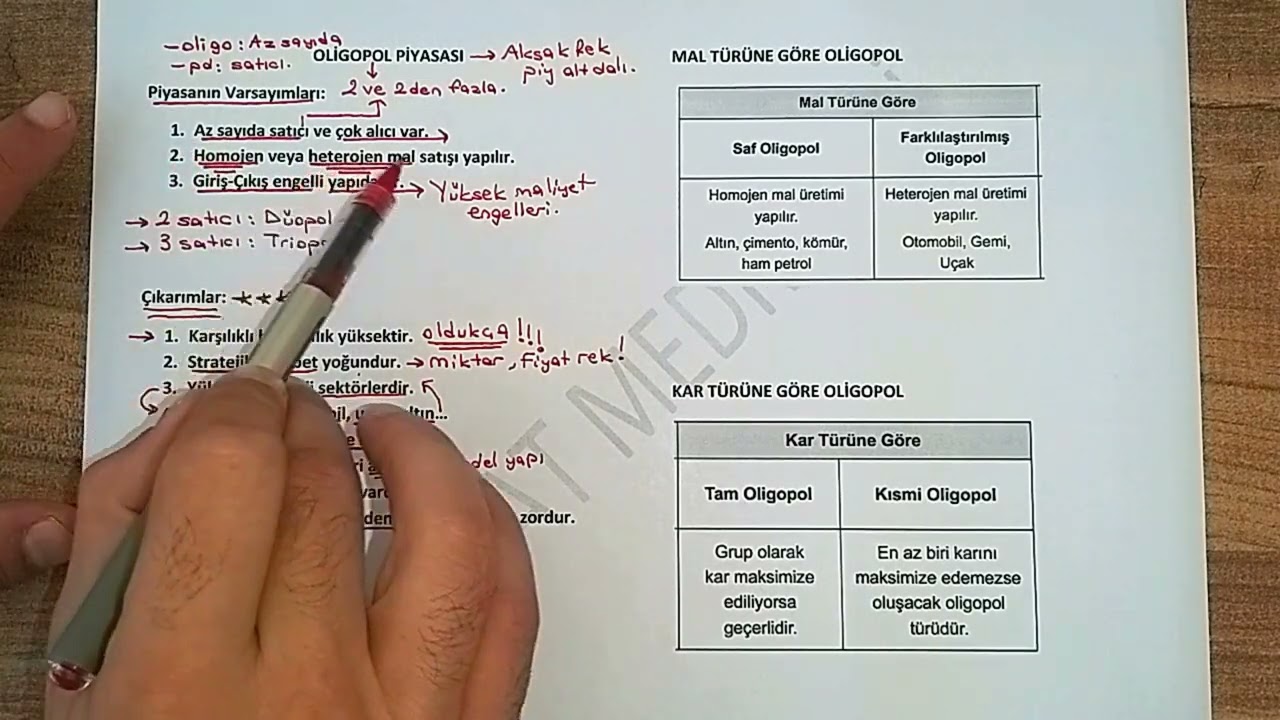 -oligo: Az sayıda
-pd: satıcı.
OLİGOPOL PİYASASI → Aksak Rek
piy alt dalı.
Piyasanın Varsayımları: 2 ve 2den fazla.
1. Az sayıda satıcı ve çok alıcı var.
2. Homojen veya heterojen mal satışı yapılır.
3. Giriş-Çıkış engelli → Yüksek maliyet
engelleri.
→ 2 satıcı: Düopol
→ 3 satıcı:
Çıkarımlar: ***
→ 1. Karşılıklı yüksektir. oldukça!!!
2. yoğundur. → miktar, fiyat rek!
3. sektörlerdir.
yapı
zordur.
MAL TÜRÜNE GÖRE OLİGOPOL
Mal Türüne Göre
Saf Oligopol
Farklılaştırılmış
Oligopol
Homojen mal üretimi
yapılır.
Altın, çimento, kömür,
ham petrol
Heterojen mal üretimi
yapılır.
Otomobil, Gemi,
Uçak
KAR TÜRÜNE GÖRE OLİGOPOL
Kar Türüne Göre
Tam Oligopol
Kısmi Oligopol
Grup olarak
kar maksimize
ediliyorsa
geçerlidir.
En az biri karını
maksimize edemezse
oluşacak oligopol
türüdür.